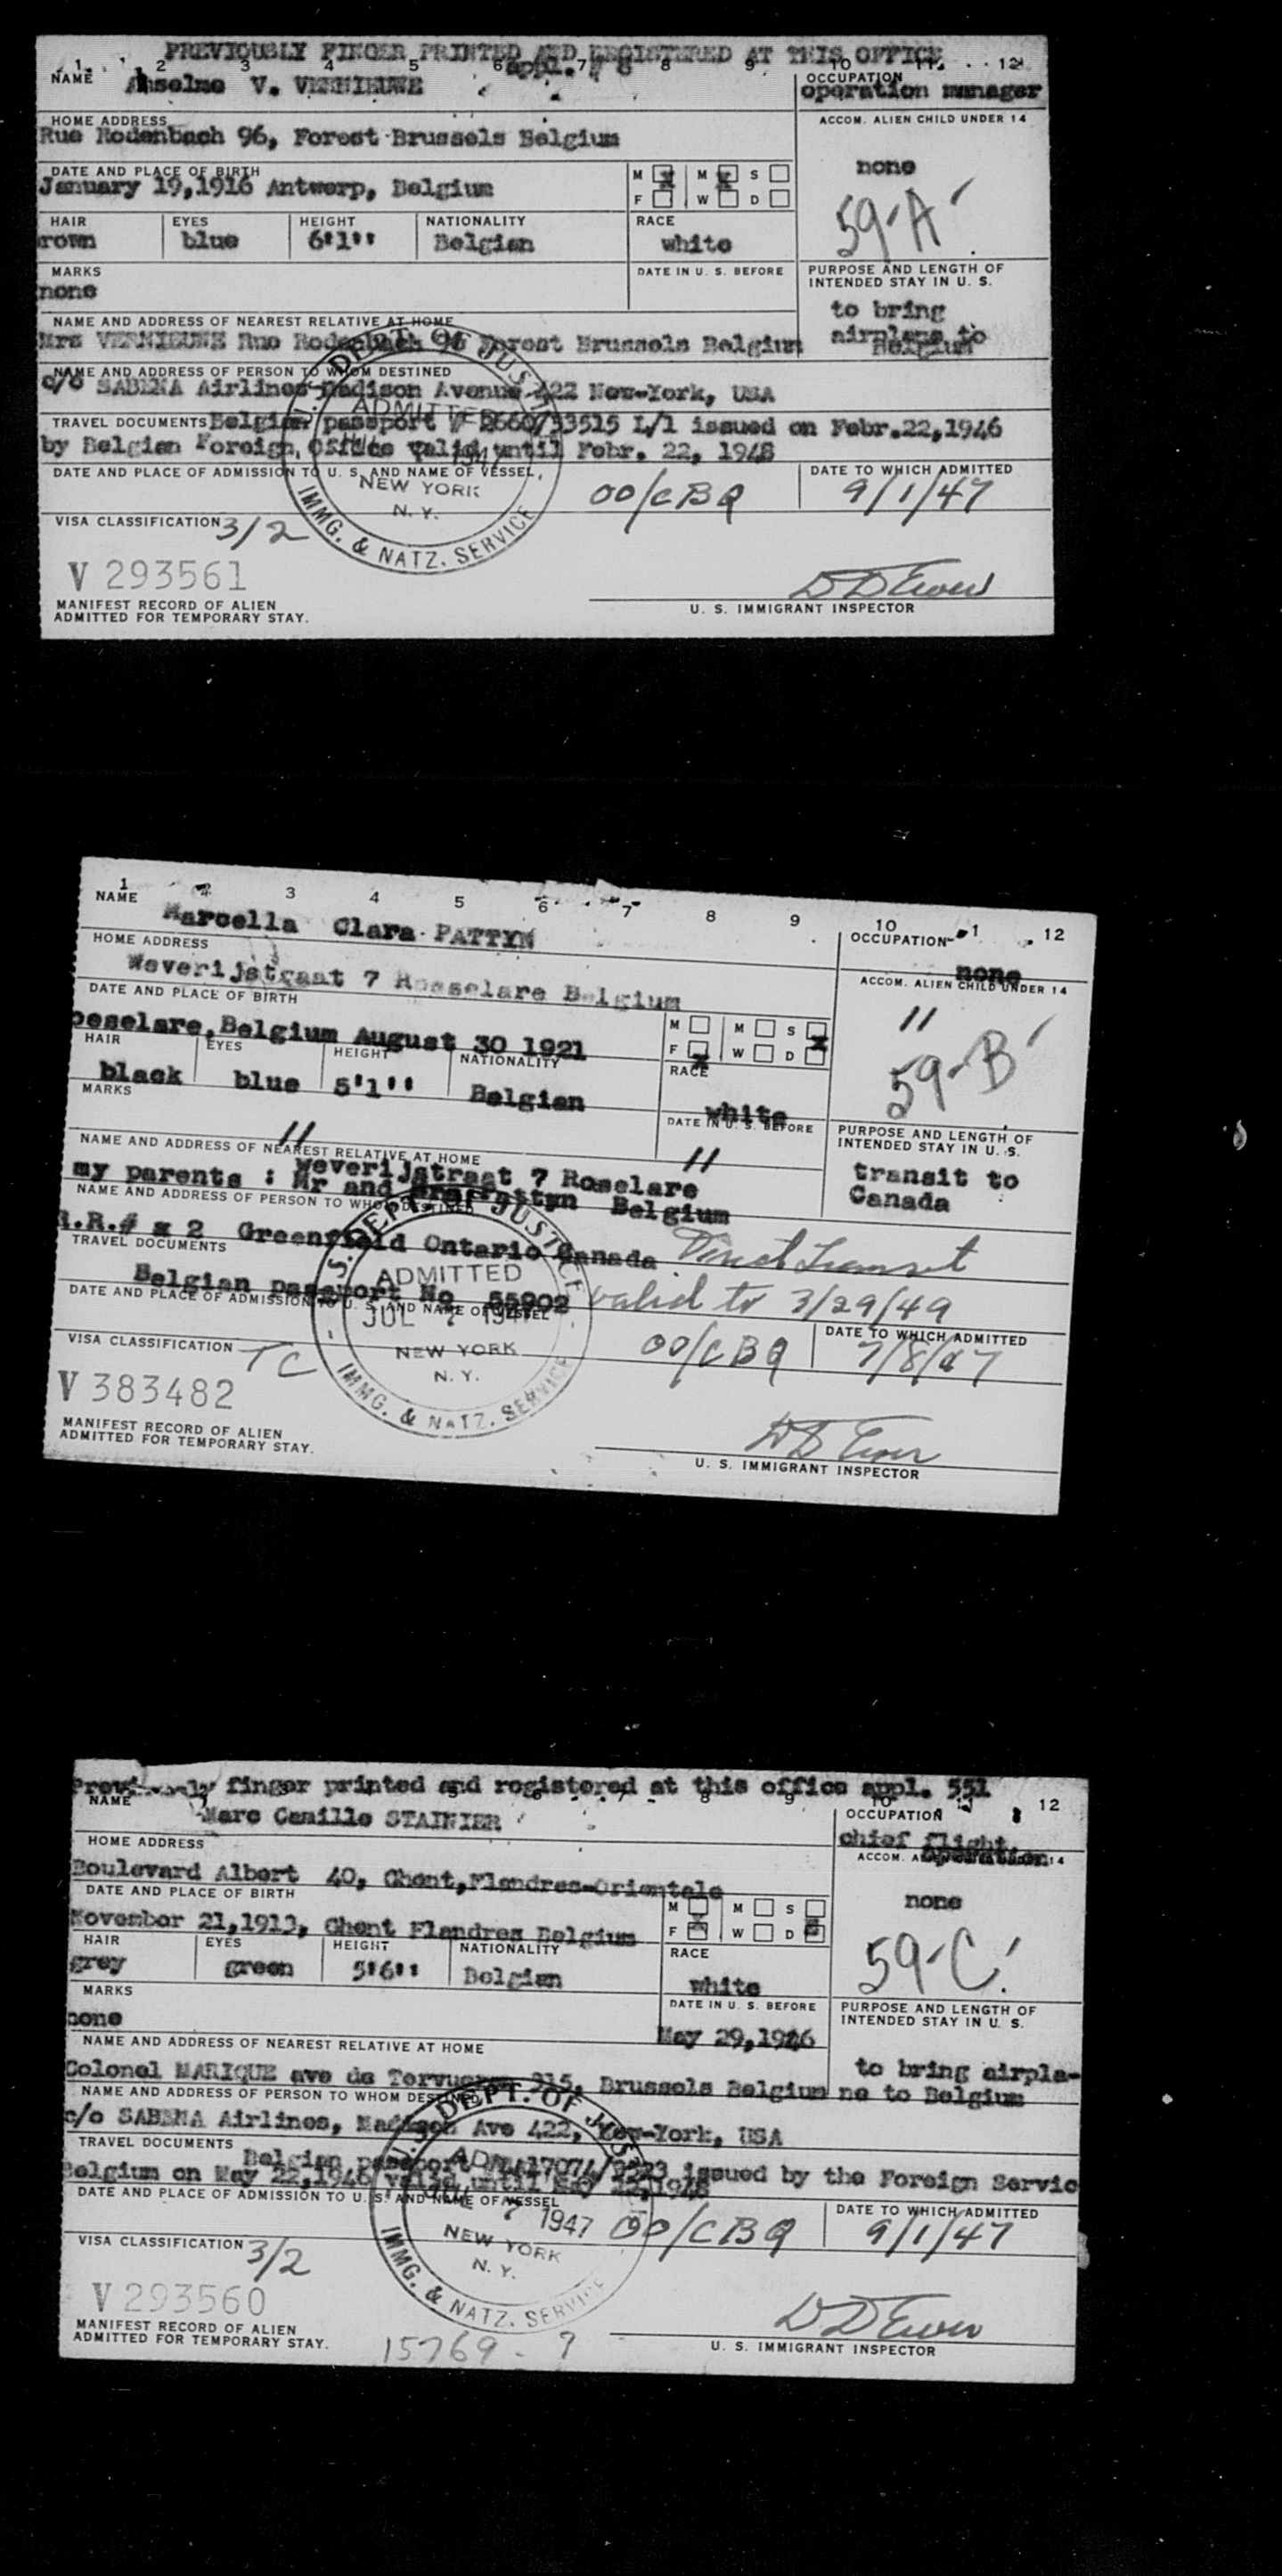 PREVIOUSLY FINGER PRINTED AND REGISTERED AT THIS OFFICE
appl.
1 2 3 4 5 6 7 8 9 10 11 12
NAME Anselme V. VERNIEUWE
OCCUPATION
operation manager
HOME ADDRESS
Rue Rodenbach 96, Forest Brussels Belgium
ACCOM. ALIEN CHILD UNDER 14
none
DATE AND PLACE OF BIRTH
January 19,1916 Antwerp, Belgium
M X M X S
F W D
59-A
HAIR EYES HEIGHT NATIONALITY RACE
rown blue 6'1'' Belgian white
MARKS
none
DATE IN U. S. BEFORE
PURPOSE AND LENGTH OF
INTENDED STAY IN U. S.
to bring
airplane to
Belgium
NAME AND ADDRESS OF NEAREST RELATIVE AT HOME
Mrs VERNIEUWE Rue Rodenbach 96 Forest Brussels Belgium
NAME AND ADDRESS OF PERSON TO WHOM DESTINED
c/o SABENA Airlines Madison Avenue 422 New-York, USA
TRAVEL DOCUMENTS Belgian passport 2660/33515 L/1 issued on Febr.22,1946
by Belgian Foreign Office valid until Febr. 22, 1948
DATE AND PLACE OF ADMISSION TO U. S. AND NAME OF VESSEL
OO/CBQ
DATE TO WHICH ADMITTED
9/1/47
VISA CLASSIFICATION 3/2
DEPT. OF JUS
ADMITTED
NEW YORK
N. Y.
IMMG. & NATZ. SERVICE
V 293561
MANIFEST RECORD OF ALIEN
ADMITTED FOR TEMPORARY STAY.
U. S. IMMIGRANT INSPECTOR
1 2 3 4 5 6 7 8 9 10 1 12
NAME
Marcella Clara PATTYN
OCCUPATION
none
HOME ADDRESS
Weverijstraat 7 Roeselare Belgium
ACCOM. ALIEN CHILD UNDER 14
"
DATE AND PLACE OF BIRTH
oeselare,Belgium August 30 1921
M M S X
F X W D
59-B
HAIR EYES HEIGHT NATIONALITY RACE
black blue 5'1'' Belgian white
MARKS
"
DATE IN U. S. BEFORE
"
PURPOSE AND LENGTH OF
INTENDED STAY IN U. S.
transit to
Canada
NAME AND ADDRESS OF NEAREST RELATIVE AT HOME
Weverijstraat 7 Roselare
my parents : Mr and Mrs Pattyn Belgium
NAME AND ADDRESS OF PERSON TO WHOM DESTINED
R.R.# 2 Greenfield Ontario Canada
TRAVEL DOCUMENTS
Transit
Belgian passport No 55902 valid to 3/29/49
DATE AND PLACE OF ADMISSION TO U. S. AND NAME OF VESSEL
OO/CBQ
DATE TO WHICH ADMITTED
7/8/47
VISA CLASSIFICATION TC
S. DEPT. OF JUSTICE
ADMITTED
JUL 7 1947
NEW YORK
N. Y.
IMMG. & NATZ. SERVICE
V 383482
MANIFEST RECORD OF ALIEN
ADMITTED FOR TEMPORARY STAY.
U. S. IMMIGRANT INSPECTOR
Previously finger printed and registered at this office appl. 551
NAME 5 6 7 8 9 10 12
Marc Camille STAINIER
OCCUPATION
chief flight
operation
HOME ADDRESS
Boulevard Albert 40, Ghent,Flandres-Orientale
ACCOM. ALIEN 14
none
DATE AND PLACE OF BIRTH
November 21,1913, Ghent Flandres Belgium
M M S
F W D
59-C
HAIR EYES HEIGHT NATIONALITY RACE
grey green 5'6'' Belgian white
MARKS
none
DATE IN U. S. BEFORE
May 29,1946
PURPOSE AND LENGTH OF
INTENDED STAY IN U. S.
to bring airpla-
ne to Belgium
NAME AND ADDRESS OF NEAREST RELATIVE AT HOME
Colonel MARIQUE ave de Tervueren 215, Brussels Belgium
NAME AND ADDRESS OF PERSON TO WHOM DESTINED
c/o SABENA Airlines, Madison Ave 422, New-York, USA
TRAVEL DOCUMENTS
Belgian passport issued by the Foreign Servic
Belgium on May 22,1946 valid until May 22,1948
DATE AND PLACE OF ADMISSION TO U. S. AND NAME OF VESSEL
OO/CBQ
DATE TO WHICH ADMITTED
9/1/47
VISA CLASSIFICATION 3/2
DEPT. OF JUS
7 1947
NEW YORK
N. Y.
IMMG. & NATZ. SERVICE
V 293560
MANIFEST RECORD OF ALIEN
ADMITTED FOR TEMPORARY STAY.
15769 - 7
U. S. IMMIGRANT INSPECTOR